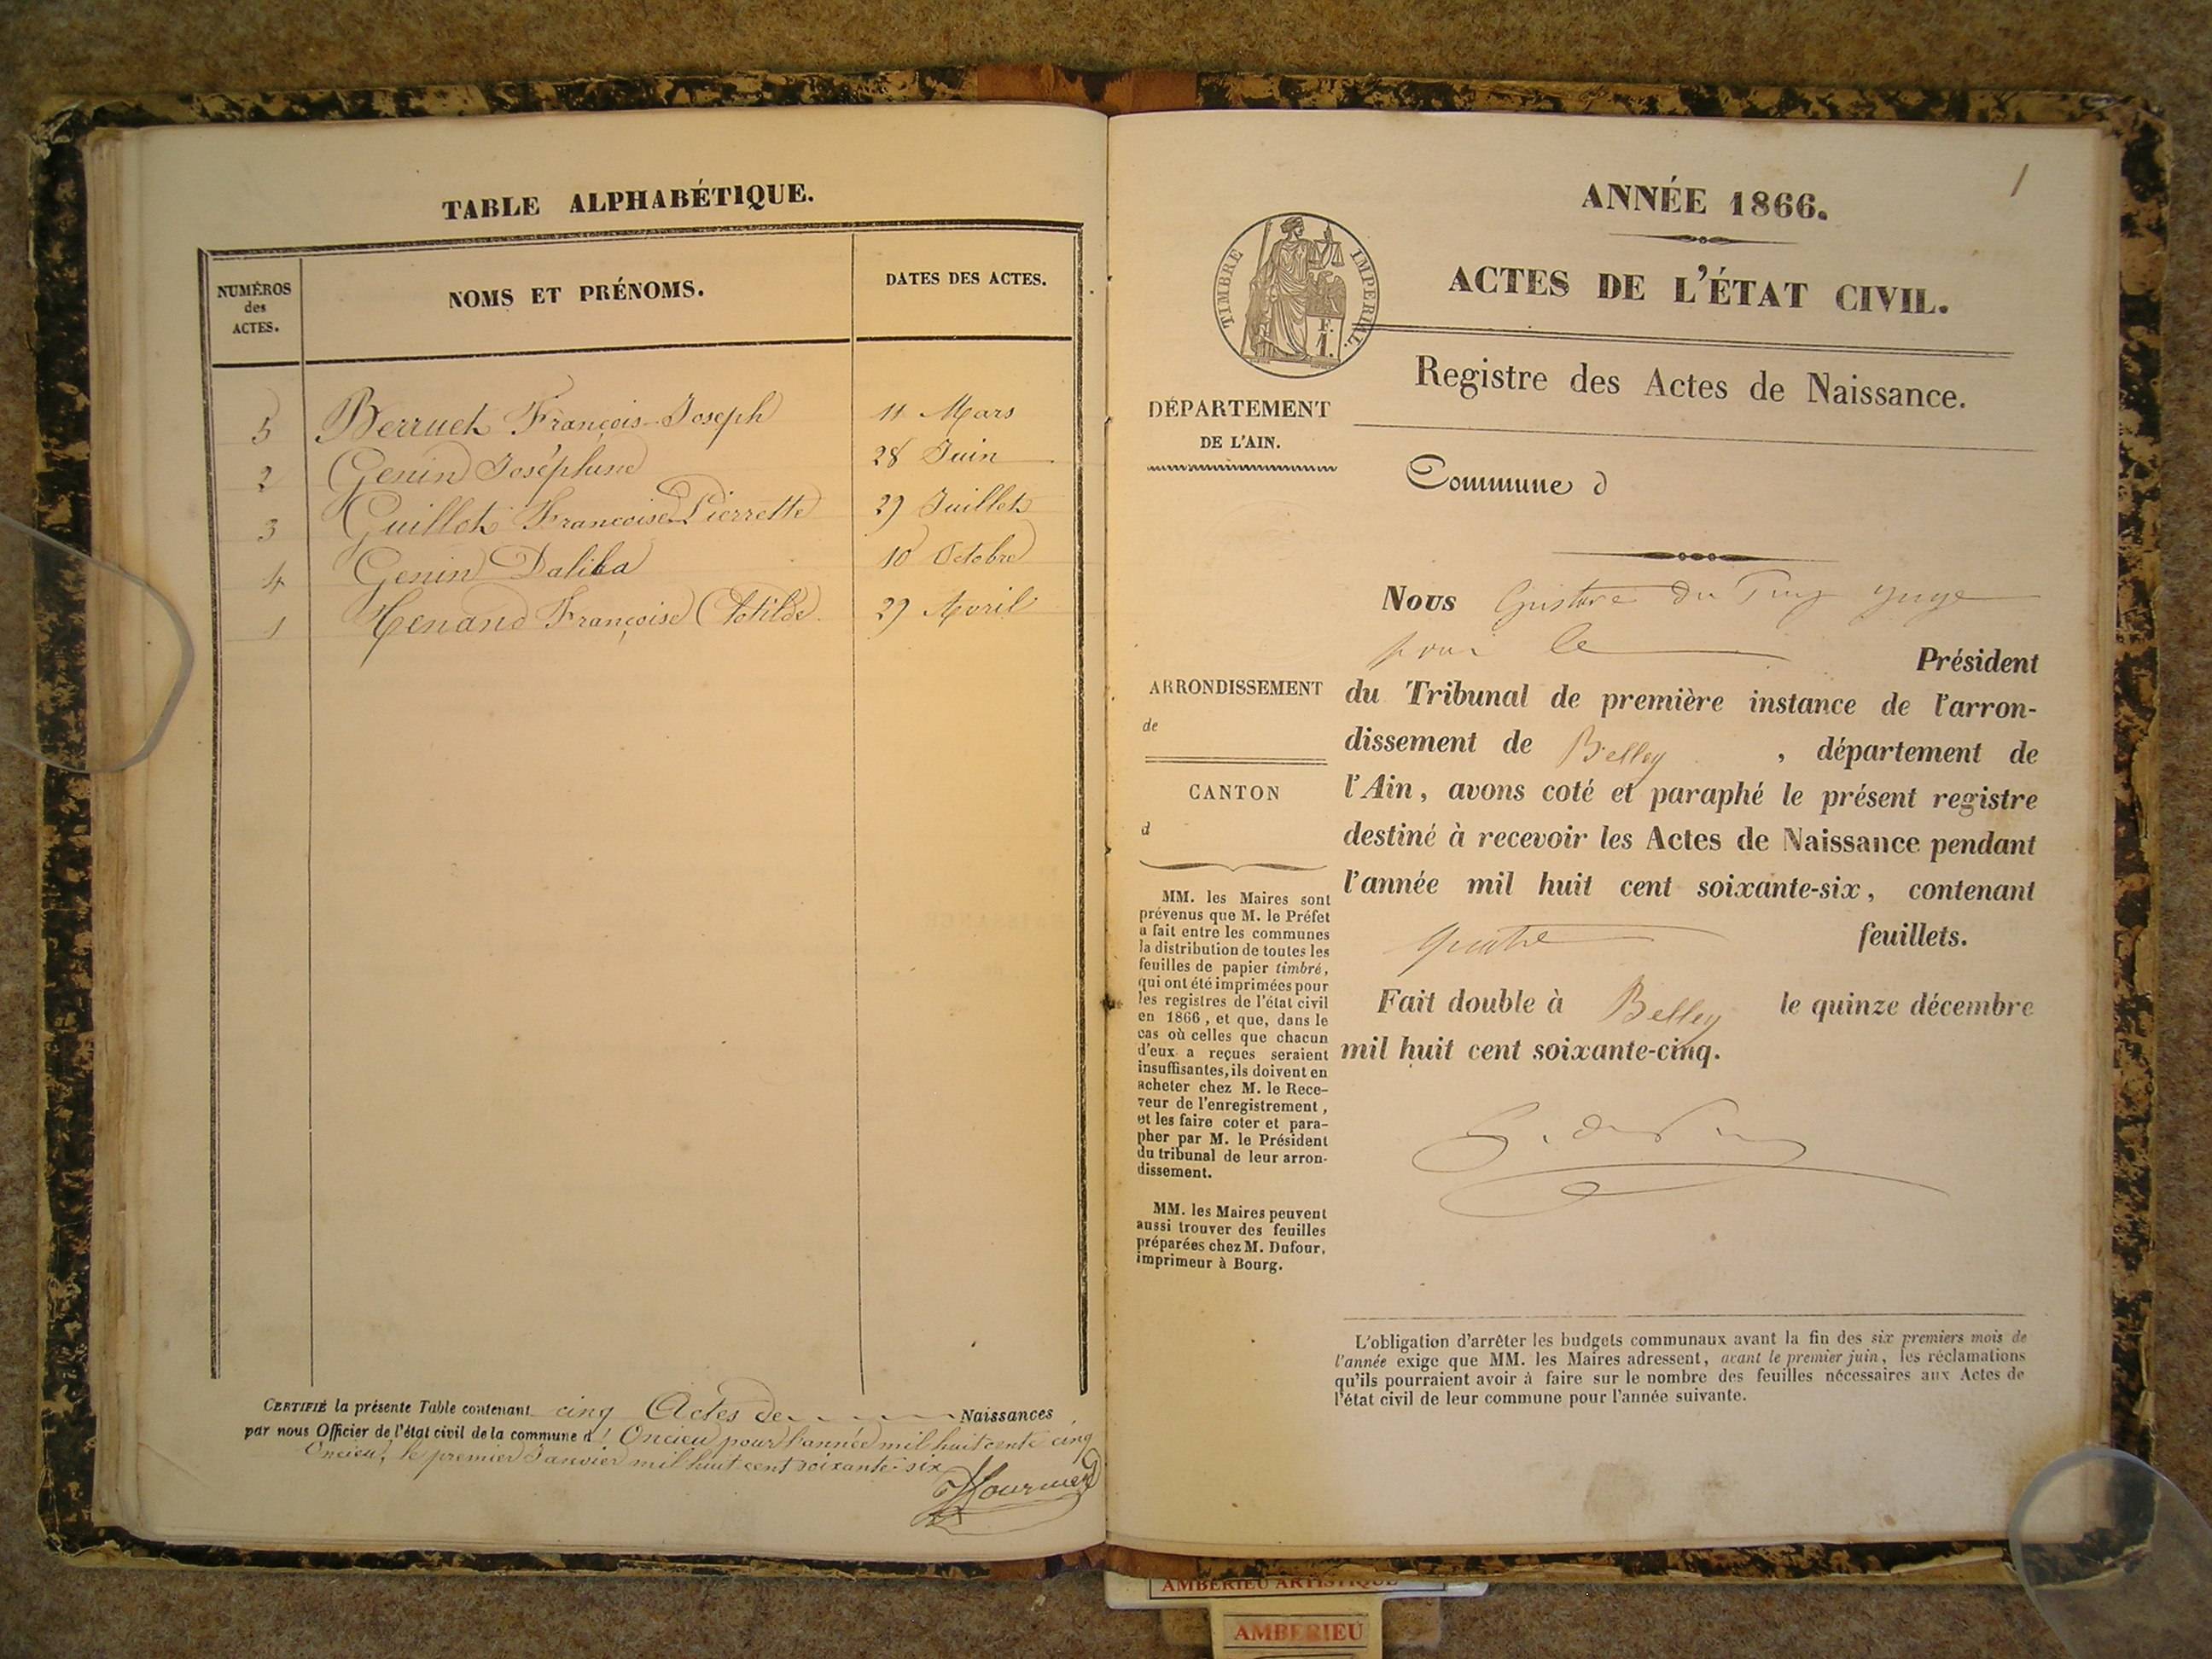 TABLE ALPHABÉTIQUE.
NUMÉROS
des
ACTES.
NOMS ET PRÉNOMS.
DATES DES ACTES.
5 Berruet François-Joseph 11 Mars
2 Genin Joséphine 28 Juin
3 Guillot Françoise Pierrette 29 Juillet
4 Genin Dalila 10 Octobre
1 Henand Françoise Clotilde. 29 Avril
CERTIFIÉ la présente Table contenant cinq Actes de Naissances
par nous Officier de l'état civil de la commune d' Oncieu pour l'année mil huit cent cinq
Oncieu, le premier Janvier mil huit cent soixante-six
1
ANNÉE 1866.
ACTES DE L'ÉTAT CIVIL.
TIMBRE IMPERIAL.
F.
1.
Registre des Actes de Naissance.
DÉPARTEMENT
DE L'AIN.
Commune d
ARRONDISSEMENT
de
CANTON
d
MM. les Maires sont
prévenus que M. le Préfet
a fait entre les communes
la distribution de toutes les
feuilles de papier timbré,
qui ont été imprimées pour
les registres de l'état civil
en 1866, et que, dans le
cas où celles que chacun
d'eux a reçues seraient
insuffisantes, ils doivent en
acheter chez M. le Rece-
veur de l'enregistrement,
et les faire coter et para-
pher par M. le Président
du tribunal de leur arron-
dissement.
MM. les Maires peuvent
aussi trouver des feuilles
préparées chez M. Dufour,
imprimeur à Bourg.
Nous Gustave du Puy juge
pour le Président
du Tribunal de première instance de l'arron-
dissement de Belley, département de
l'Ain, avons coté et paraphé le présent registre
destiné à recevoir les Actes de Naissance pendant
l'année mil huit cent soixante-six, contenant
quatre feuillets.
Fait double à Belley le quinze décembre
mil huit cent soixante-cinq.
G. du Puy
L'obligation d'arrêter les budgets communaux avant la fin des six premiers mois de
l'année exige que MM. les Maires adressent, avant le premier juin, les réclamations
qu'ils pourraient avoir à faire sur le nombre des feuilles nécessaires aux Actes de
l'état civil de leur commune pour l'année suivante.
AMBERIEU ARTISTIQUE
AMBERIEU